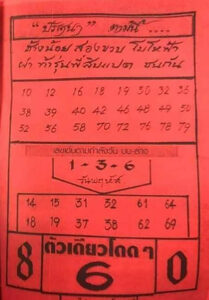 "ปริศนา" ตามนี้ ....
ช้างน้อย สองขวบ ในฟ้า
ฝ่า ท้ารุ่นพี่สิบแปด ชนกัน
10 12 16 18 19 30 32 36
38 39 40 42 46 48 49 50
52 56 58 70 72 76 79
เลขเด่นตามกำลังวัน บน-ล่าง
1-3-6
วันพฤหัส
14 15 31 32 61 64
18 19 37 38 62 69
ตัวเดียวโดดๆ
8 6 0